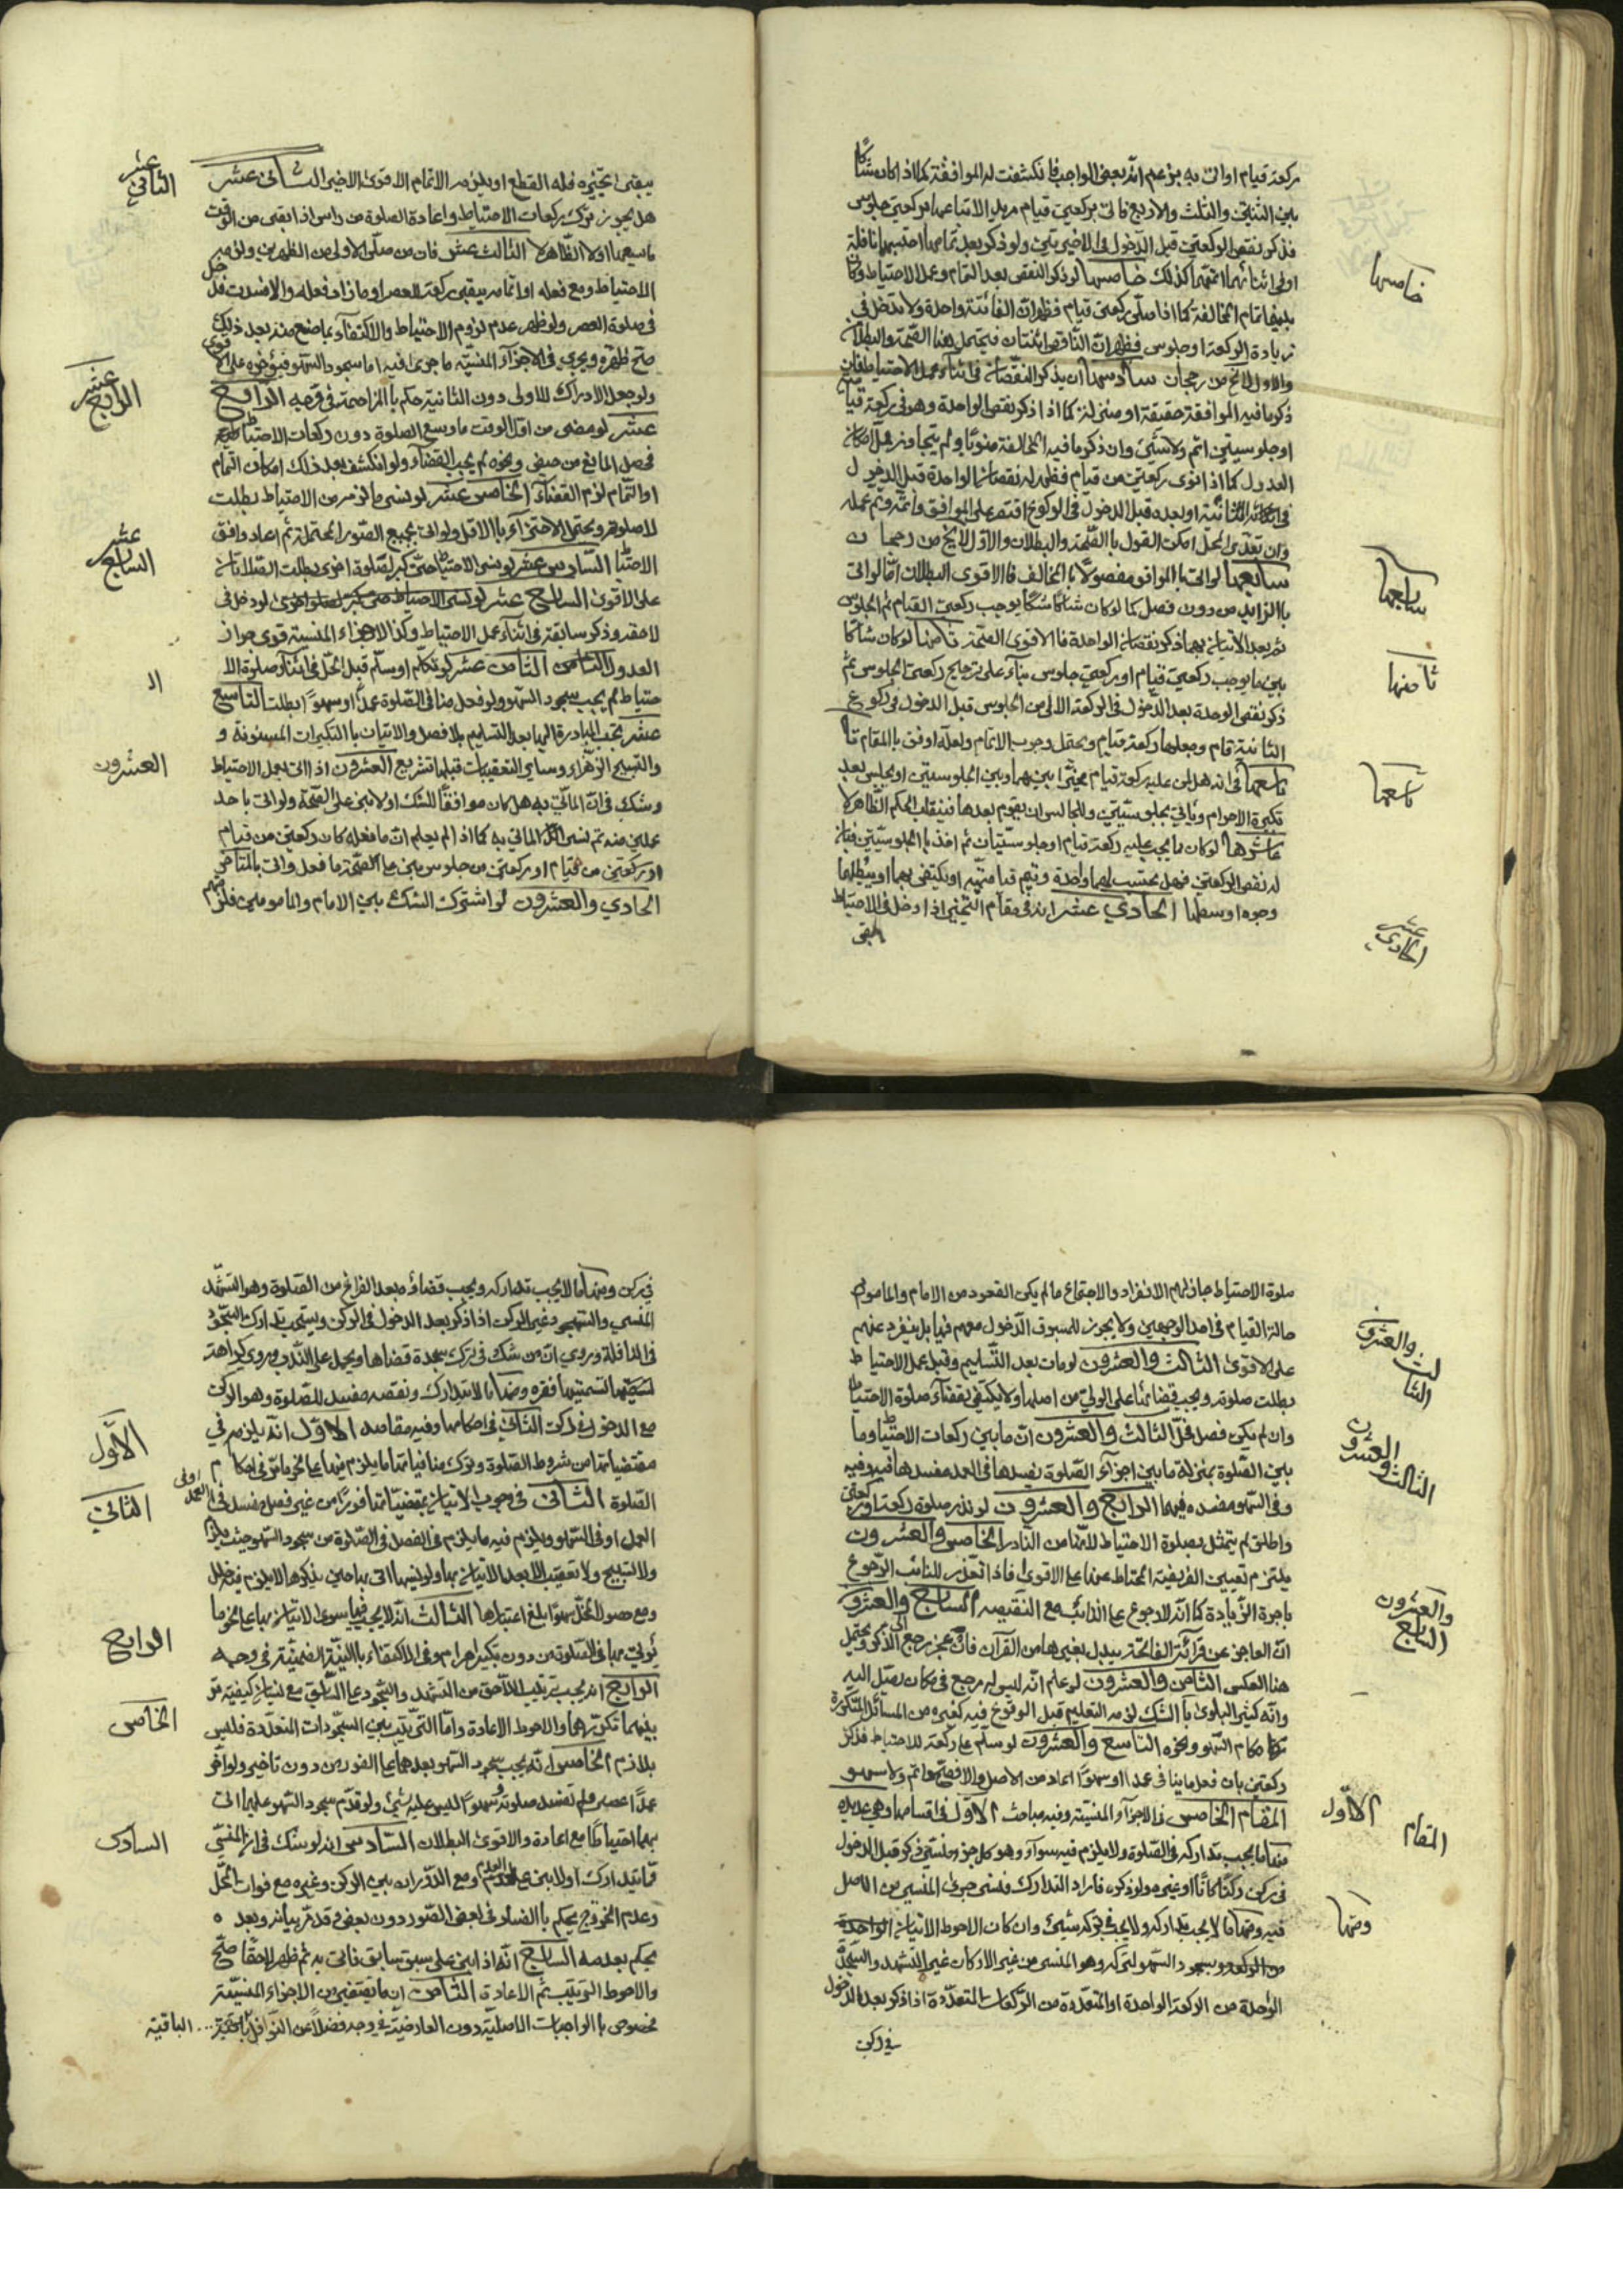 ركعة قيام او اتى به بزعم انه بعض الواجب فانكشفت له الموافقة كما اذا كان شاكا
بين الثنتين والثلث والاربع فاتى بركعتي قيام مريدا لاتباعهما بركعتي جلوس
فذكر نقص الركعتين قبل الدخول في الاخيرتين ولو ذكر بعد تمامهما احتسبهما نافلة
او في اثنائهما اتمهما كذلك خامسها لو ذكر النقص بعد التمام وعمل الاحتياط وكان
بينهما تمام المخالفة كما اذا صلى ركعتي قيام فظهر ان الفائتة واحدة ولا تدخل في
زيادة الركعة او جلوس فظهر ان الناقص اثنتان فيحتمل هنا الصحة والبطلان
والاول لا يخ من رجحان سادسها ان يذكر النقصان في اثناء عمل الاحتياط فان
ذكر ما فيه الموافقة حقيقة او منزلة كما اذا ذكر نقص الواحدة وهو في ركعة قيام
او جلوسيتين اتم ولا شيء وان ذكر ما فيه المخالفة منويا ولم يتجاوز محل امكان
العدول كما اذا نوى ركعتين من قيام فظهر له نقصان الواحدة قبل الدخول
في الثانية او بعده قبل الدخول في الركوع اقتصر على الموافق واتمه وتم عمله
وان تعدى المحل امكن القول بالصحة والبطلان والاول لا يخ من رجحان
سابعها لو اتى بالموافق مفصولا بالمخالف فالاقوى البطلان اما لو اتى
بالزايد من دون فصل كما لو كان شاكا شكا يوجب ركعتي القيام ثم الجلوس
ثم بعد الاتيان بهما ذكر نقصان الواحدة فالاقوى الصحة ثامنها لو كان شاكا
بين ما يوجب ركعتي قيام او ركعتي جلوس بناء على ترجيح ركعتي الجلوس ثم
ذكر نقص الوحدة بعد الدخول في الركعة الاولى من الجلوس قبل الدخول في ركوع
الثانية قام وجعلها ركعة قيام ويحتمل وجوب الاتمام ولعله اوفق بالمقام
تاسعها في انه هل من عليه ركعة قيام مخيرا بينهما وبين الجلوسيتين او يجلس بعد
تكبيرة الاحرام وياتي بجلوسيتين وللجالس ان يقوم بعدها فينقلب الحكم الظاهر لا
عاشرها لو كان ما يجب عليه ركعة قيام او جلوسيتان ثم اخذ بالجلوسيتين فبان
له نقص الركعتين فهل يحتسب لهما واحدة ويتم قيامتيه او يكتفي بهما او يبطلهما
وجوه اوسطها الحادي عشر انه في مقام التخيير اذا دخل في الاحتياط
يبقى
خامسها
سابعها
ثامنها
تاسعها
الحادي عشر
يبقى تخييره فله القطع او يلزمه الاتمام الاقوى الاخير الثاني عشر
هل يجوز ترك ركعات الاحتياط واعادة الصلوة من راس اذا بقى من الوقت
ما يسعها او لا الظاهر لا الثالث عشر فان من صلى الاولى من الظهرين ولزمه
الاحتياط ومع فعله او اتمامه يبقى ركعة للعصر او ما زاد فعله والا فسدت فدخل
في صلوة العصر ولو ظهر عدم لزوم الاحتياط والاكتفاء بما صنع منه بعد ذلك
صح ظهره ويجري في الاجزاء المنسية ما جرى فيه اما سجود السهو فيؤخره على الاقوى
ولو جعل الادراك للاولى دون الثانية حكم بالمزاحمة في وجه الرابع
عشر لو مضى من اول الوقت ما وسع الصلوة دون ركعات الاحتياط
فحصل المانع من حيض ونحوه لم يجب القضاء ولو انكشف بعد ذلك امكان التمام
او التمام لزم القضاء الخامس عشر لو نسى ما لزمه من الاحتياط بطلت
صلوته ويحتمل الاجتزاء بالاقل ولو اتى بجميع الصور المحتملة ثم اعاد وافق
الاحتياط السادس عشر لو نسى الاحتياط حتى كبر لصلوة اخرى بطلت الصلاتان
على الاقوى السابع عشر لو نسى الاحتياط حتى كبر لصلوة اخرى لو دخل في
لاحقه وذكر سابقة في اثناء عمل الاحتياط وكذا الاجزاء المنسية قوى جواز
العدول الثامن الثامن عشر لو تكلم او سلم قبل المحل في اثناء صلوة الا
حتياط لم يجب سجود السهو ولو فعل منافي الصلوة عمدا او سهوا بطلت التاسع
عشر تجب المبادرة اليها بعد التسليم بلا فصل والاتيان بالتكبيرات المسنونة و
والتسبيح الزهراء وساير التعقيبات قبلها تشريع العشرون اذا اتى بعمل الاحتياط
وشك في ان الماتي به هل كان موافقا للشك او لا بنى على الصحة ولو اتى باحد
عملين منه ثم نسى الماتي به كما اذا لم يعلم ان ما فعله كان ركعتين من قيام
او ركعتين من قيام او ركعتين من جلوس بنى على الصحة ما فعل واتى بالمتاخر
الحادي والعشرون لو اشترك الشك بين الامام والمامومين فلزمهم
الثاني عشر
الرابع عشر
السابع عشر
الـ
العشرون
صلوة الاحتياط جاز لهم الانفراد والاجتماع ما لم يكن القعود من الامام والماموم
حالة القيام في احد الوجهين ولا يجوز للمسبوق الدخول معهم فيها بل ينفرد عنهم
على الاقوى الثالث والعشرون لو مات بعد التسليم وقبل عمل الاحتياط
بطلت صلوته ويجب قضائها على الولي من اصلها ولا يكتفي بقضاء صلوة الاحتياط
وان لم يكن فصل مخل الثالث والعشرون ان ما بين ركعات الاحتياط وما
بين الصلوة بمنزلة ما بين اجزاء الصلوة يفسدها في العمد مفسدها فيه وفيه
وفي السهو مفسده فيهما الرابع والعشرون لو نذر صلوة ركعة او ركعتين
واطلق لم يتمثل بصلوة الاحتياط لانها من النادر الخامس والعشرون
يلتزم تعيين الفريضة المحتاط عنها على الاقوى فاذا تعذر للنائب الرجوع
باجرة الزيادة كما انه لا رجوع على النائب مع النقيصه السابع والعشرون
ان العاجز عن قرائة الفاتحة يبدل بغيرها من القرآن فان عجز رجع الى الذكر ويحتمل
هنا العكس الثامن والعشرون لو علم انه ليس له مرجع في مكان يصل اليه
وانه كثير البلوى بالشك لزمه التعليم قبل الوقوع فيه كغيره من المسائل المتكررة
كاحكام السهو ونحوه التاسع والعشرون لو سلم على ركعة للاحتياط فذكر
ركعتين بان فعل ما ينافي عمدا او سهوا اعاد من الاصل والا فصحها واتم ولا سهو
المقام الخامس في الاجزاء المنسية وفيه مباحث الاول في اقسامها وهي عديده
منها ما يجب تداركه في الصلوة ولا يلزم فيه سواه وهو كل جزء نسى ذكر قبل الدخول
في ركن ركنا كان او غيره ولو ذكره فاراد التدارك فنسى جرى المنسي من الاصل
فيه ومنها ما لا يجب تداركه ولا يجب في تركه شيء وان كان الاحوط الاتيان الواحدة
من الركعة وبسجود السهو لتركه وهو المنسى من غير الاركان غير التشهد والسجدة
الوحدة من الركعة الواحدة او المتعددة من الركعات المتعددة اذا ذكر بعد الدخول
في ركن
الثالث والعشرون
الثالث والعشرون
السابع والعشرون
الاول
المقام
ومنها
في ركن ومنها ما لا يجب تداركه ويجب قضاؤه بعد الفراغ من الصلوة وهو التشهد
المنسي والسجود غير الركن اذا ذكر بعد الدخول في الركن ويستحب تدارك السجود
في النافلة وروي ان من شك في ترك سجدة قضاها ويحمل على الندب وروي كراهة
تسميتها فقره ومنها ما لا يتدارك ونقصه مفسد للصلوة وهو الركن
مع الدخول في ركن الثاني في احكامها وفيه مقاصد الاول انه يلزم في
مقتضياتها من شروط الصلوة وترك منافياتها ما يلزم فيها على نحو ما مر في احكام
الصلوة الثاني في وجوب الاتيان بمقتضياتها فورا من غير فصل مفسد في
العمل او في السهو ويلزم فيه ما يلزم في الفصل في الصلوة من سجود السهو حيث يلزم
ولا تسبيح ولا تعقيب الا بعد الاتيان بها ولو نسيها اتى بها حين يذكرها الا يلزم فيه خلل
ومع حصول المخل سهوا بلغ اعتبارها الثالث انه لا يجب فيها سوى الاتيان بها على نحو ما
يؤتى بها في الصلوة من دون تكبير احرام وفي الاكتفاء بالنية الضمنية في وجه
الرابع انه يجب ترتيب اللاحق من التشهد والسجود على السابق مع نسيان كيفيته مر
بينهما تكررهما والاحوط الاعادة واما الترتيب بين السجودات المتعددة فليس
بلازم الخامس انه يجب سجود السهو بعدهما على الفور من دون تاخير ولو اخر
عمدا عصى ولم تفسد صلوته وسهوا ليس عليه شيء ولو قدم سجود السهو عليها اتى
بهما احتياطا مع اعادة والاقوى البطلان السادس انه لو شك في ان المنسي
مما يتدارك او لا بنى على العدم ومع الدوران بين الركن وغيره مع فوات المحل
وعدم الخروج يحكم بالفساد في بعض الصور دون بعض وقد مر بيانه وبعده
يحكم بعدمه السابع انه اذا بنى على سبق سابق فاتى به ثم ظهر لاحقا صح
والاحوط الترتيب ثم الاعادة الثامن ان ما يقتضي من الاجزاء المنسية
مخصوص بالواجبات الاصلية دون العارضية في وجه فضلا عن النوافل ... الباقية
الاول
الثاني
الرابع
الخامس
السادس